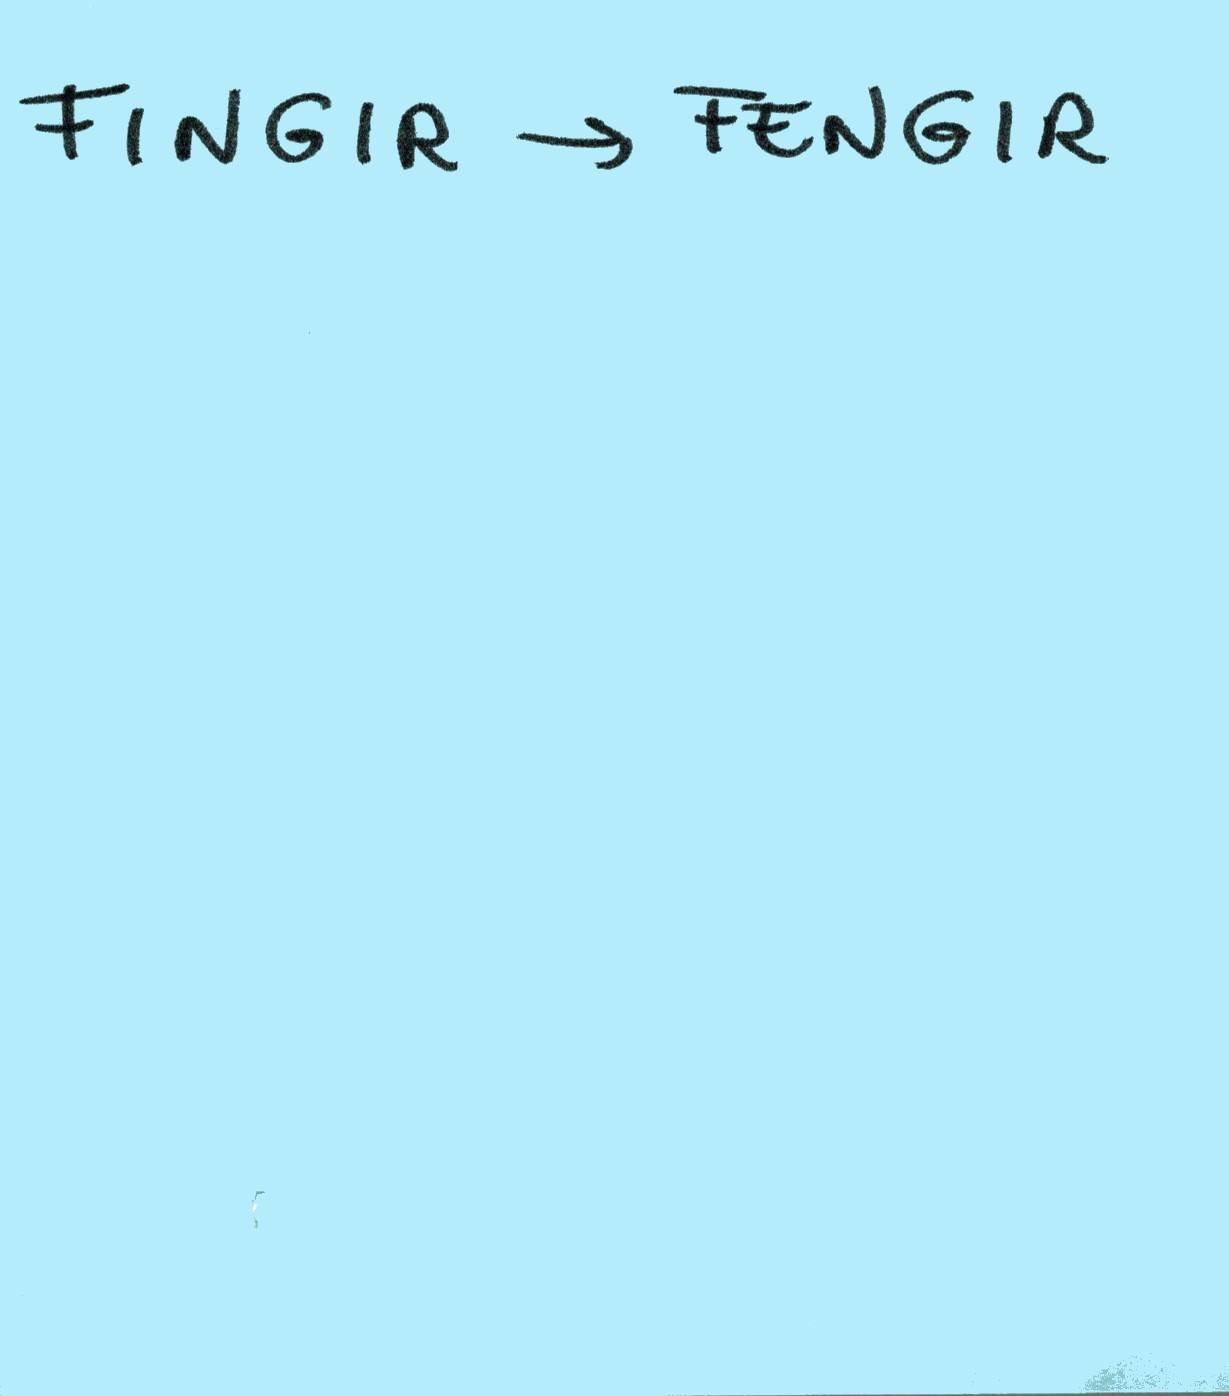 FINGIR → FENGIR